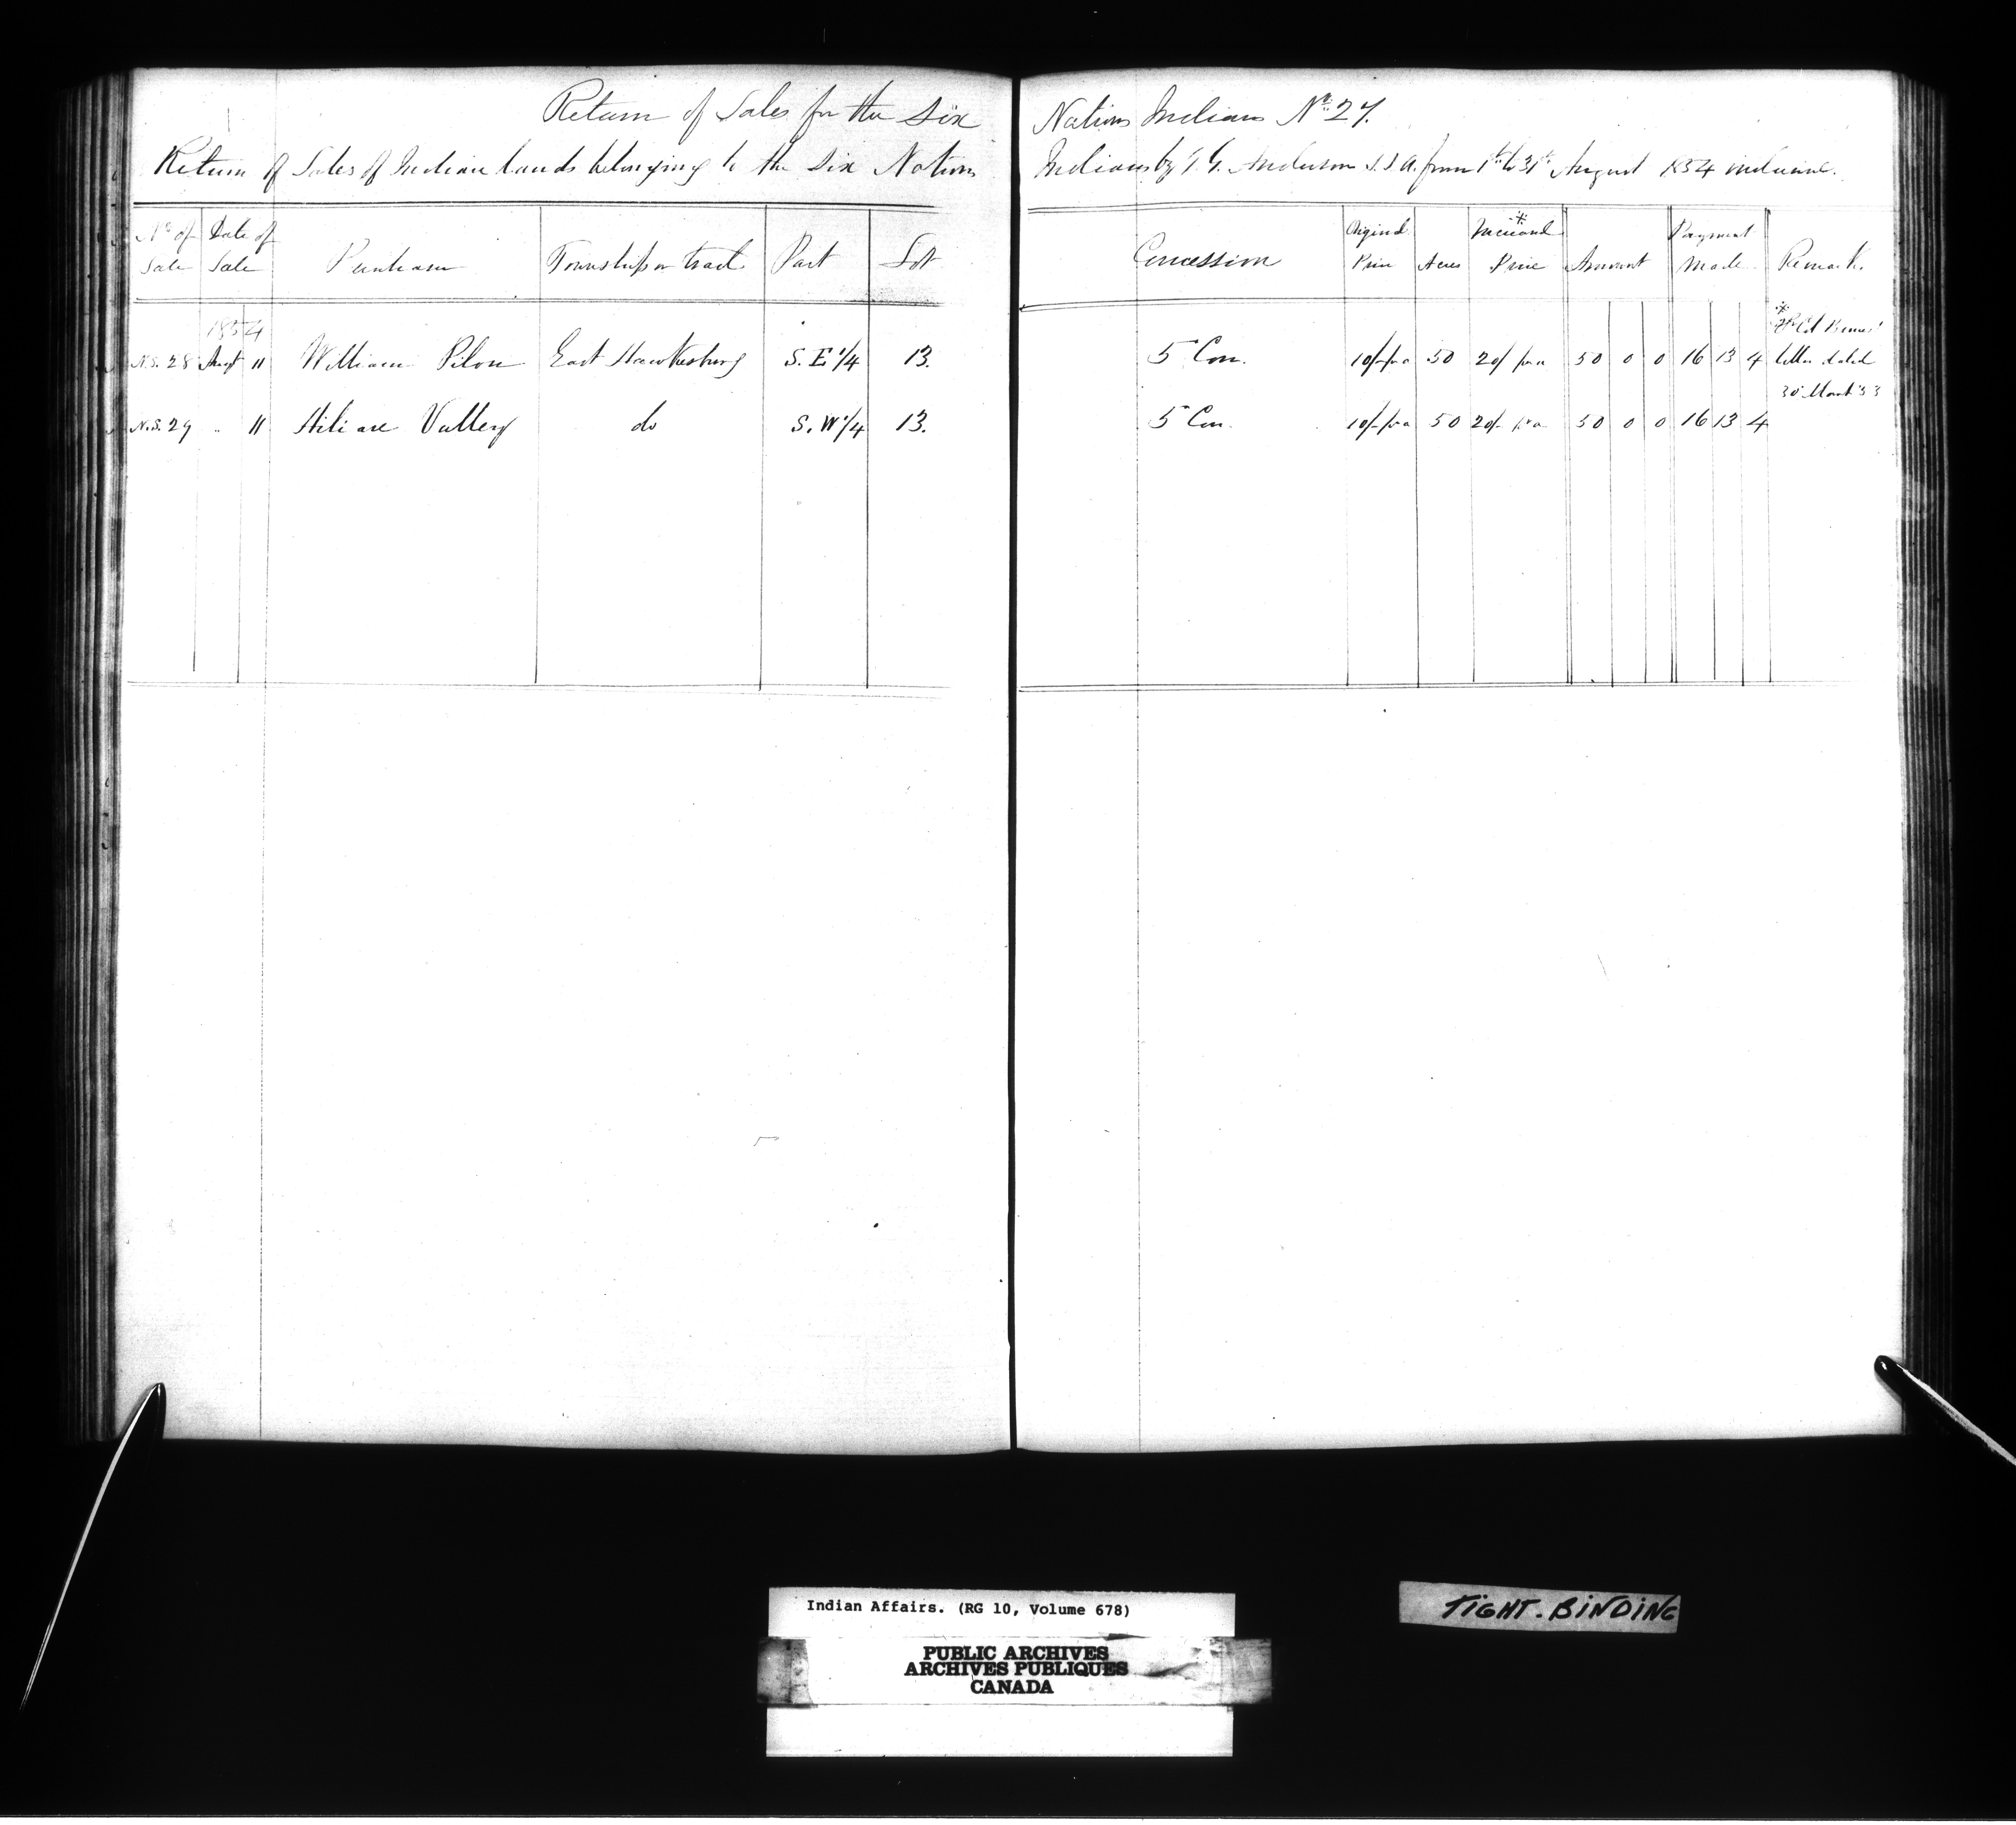 Return of Sales for the Six Nations Indians No. 27.
Return of Sales of Indian Lands belonging to the Six Nations Indians by T. G. Anderson S.I.A. from 1st to 31st August 1854 inclusive.
No. of Sale | Date of Sale | Purchaser | Township or tract | Part | Lot | Concession | Original Price | Acres | Increased * Price | Amount | Payment Made | Remarks
1854
N.S. 28 | Augt 11 | William Pilon | East Hawkesbury | S. E 1/4 | 13. | 5 Con. | 10/- pr a | 50 | 20/ pr a | 50 0 0 | 16 13 4 | * Col letter dated 30
N.S. 29 | " 11 | Hiliare Vallery | do | S. W 1/4 | 13. | 5 Con. | 10/- pr a | 50 | 20/- pr a | 50 0 0 | 16 13 4
Indian Affairs. (RG 10, Volume 678)
PUBLIC ARCHIVES
ARCHIVES PUBLIQUES
CANADA
TIGHT. BINDING